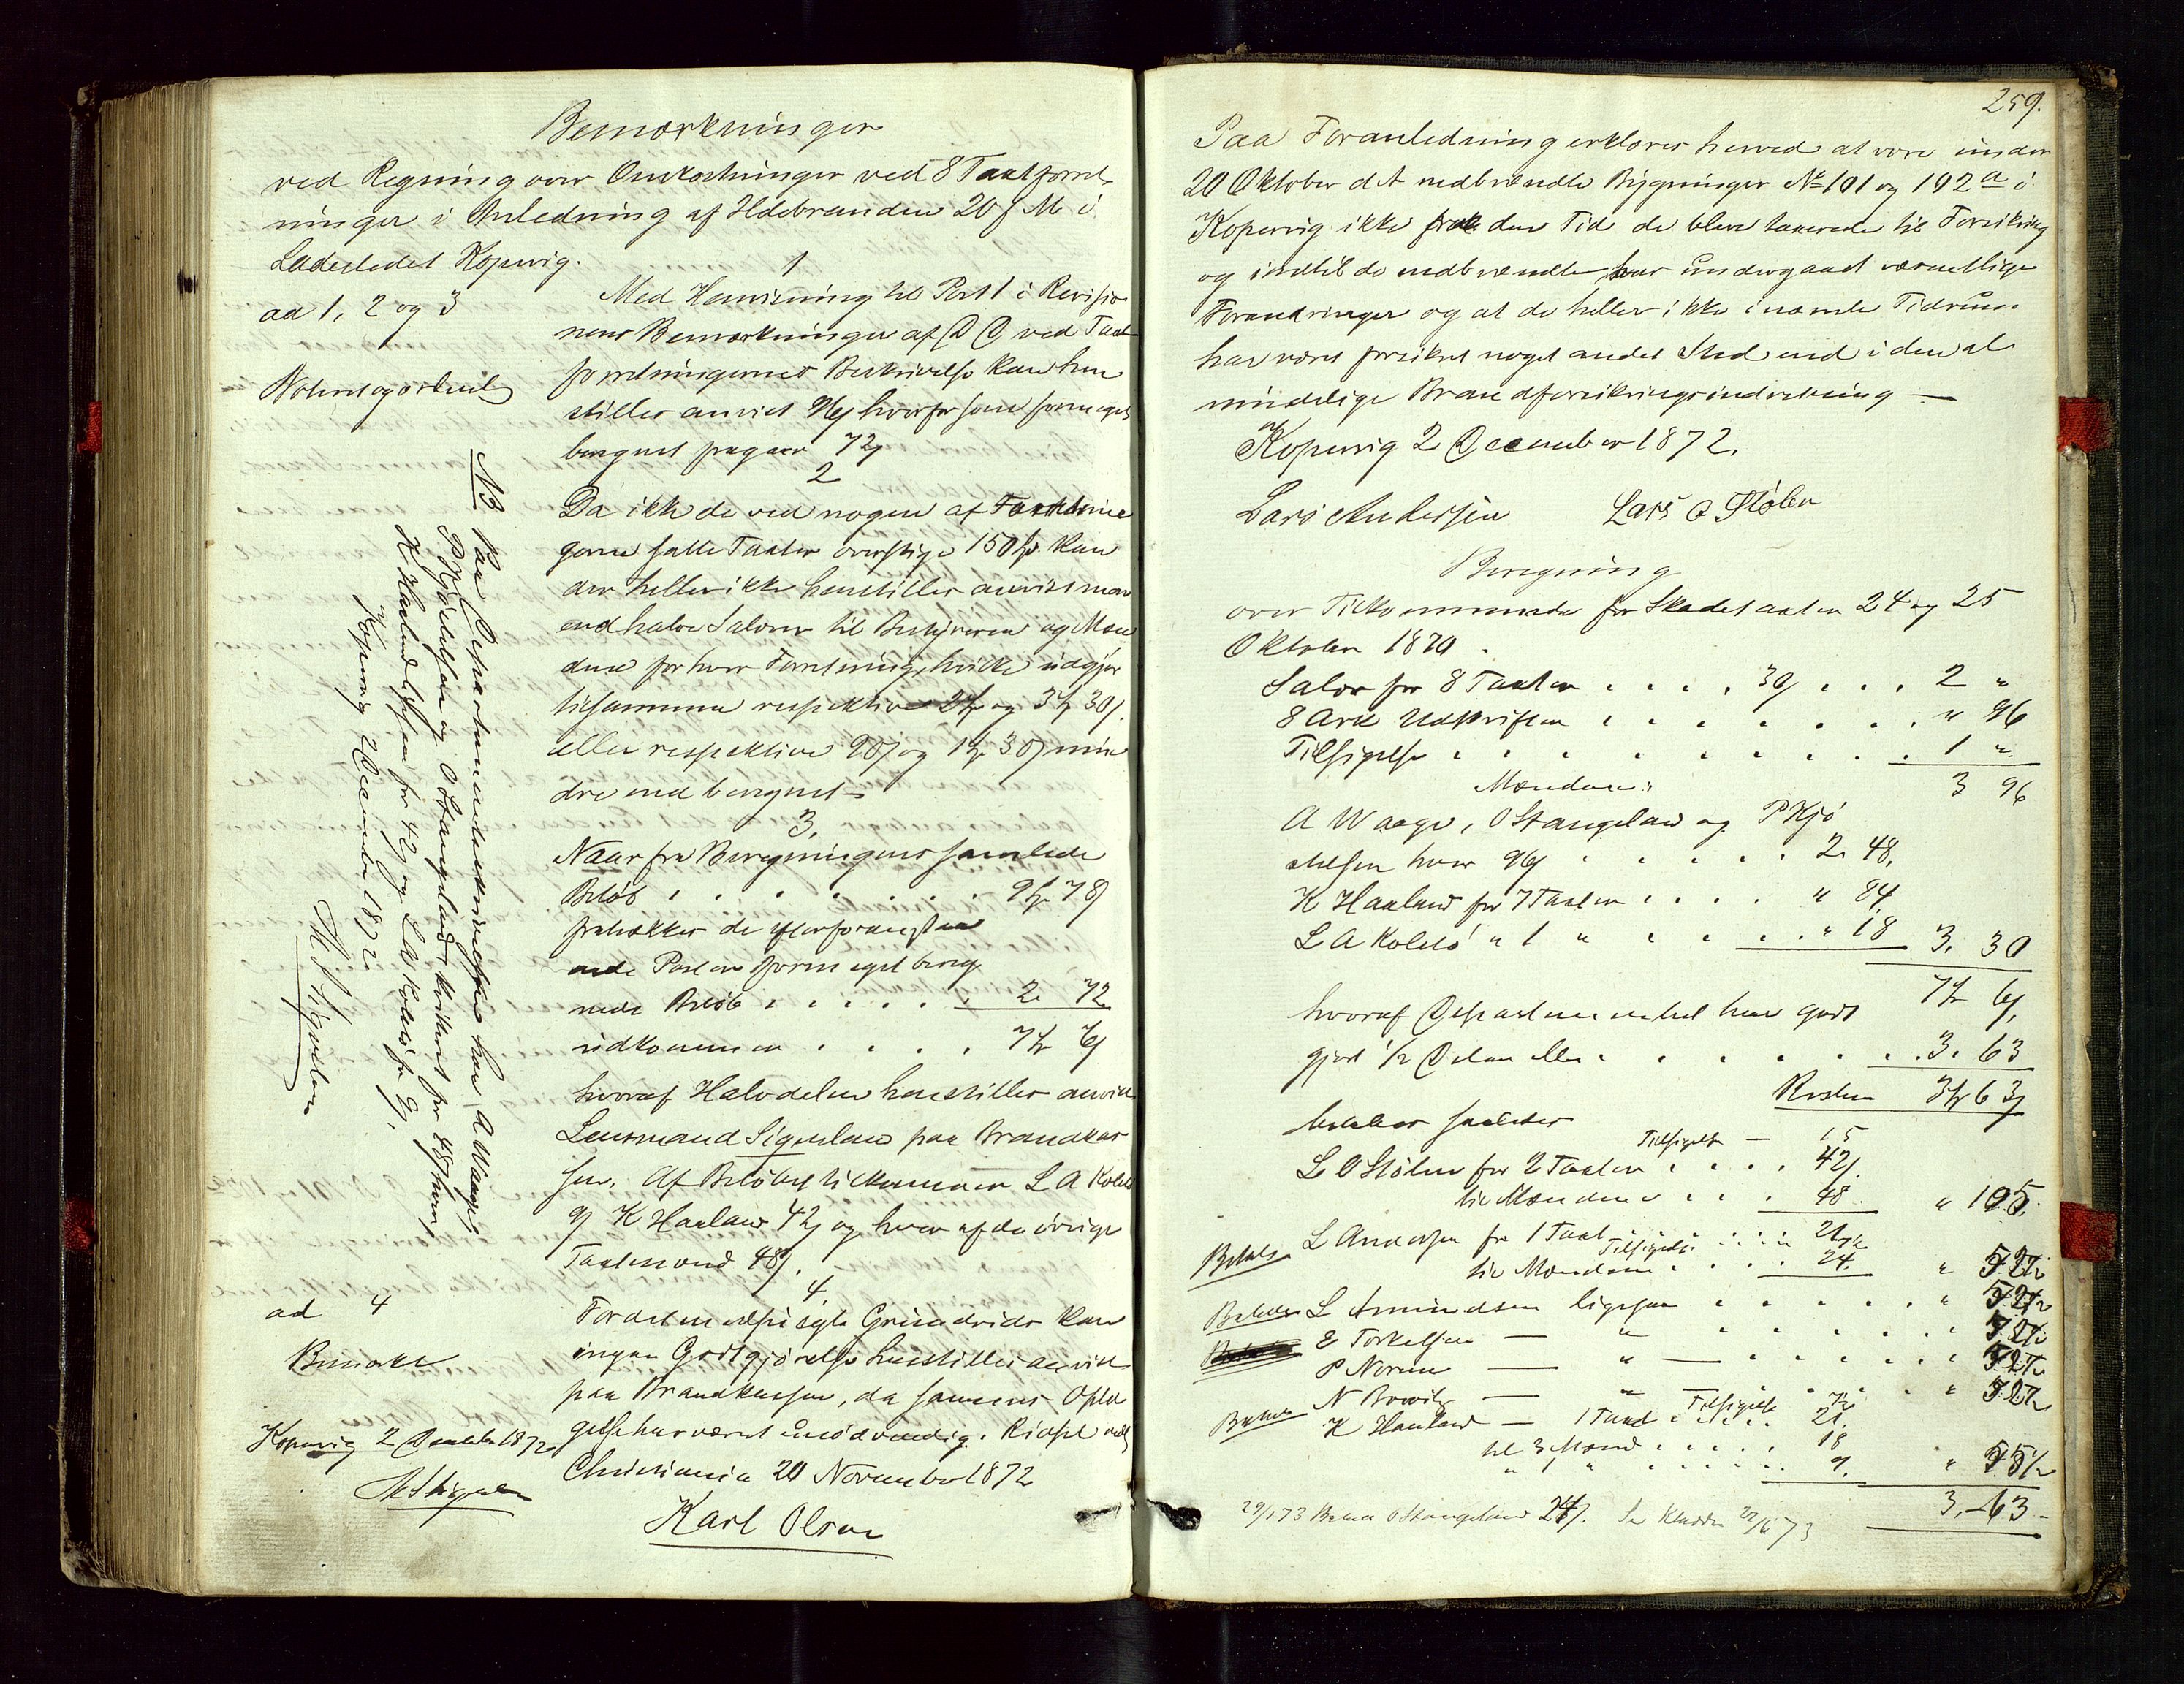 Bemærkninger
ved Regning over Omkostninger ved 8 Taxtforret
ninger i Anledning af Ildebranden 20 f M i
Ladestedet Kopervig.
ad 1, 2 og 3
Noteres og
1
Med Henvisning til Post 1 i Revisio
nens Bemærkninger af D D ved Taxt
forretningernes Beskrivelse kan hen
stilles anvist 96 ß hvorfor som formeget
beregnet fragaar 72 ß
2
Da ikke de ved nogen af
gerne satte Taxter overstige 150 Spd kan
der heller ikke henstilles anvist mere
end halve Salærer til Bestyreren og Mæn
dene for hver Forretning, hvilke udgjør
tilsammen respektive og 3 Spd 30 ß.
eller respektive 90 ß og 1 Spd 30 ß min
dre end beregnet
3.
Naar fra Beregningens samlede
Beløb . . . . . . 9 Spd 78 ß
fratrækkes de efter foranstaa
ende Poster formeget bereg
nede Beløb . . . . . . 2. 72
udkommer . . . . 7 Spd 6 ß
hvoraf Halvdelen henstilles anvist
Lensmand Sigvelan paa Brandkas
sen. Af Beløbet tilkommer L A Kolstø
9 ß K Haaland 42 ß og hver af de øvrige
Taxtmænd 48 ß.
4.
ad 4
Bemærket
For det medfulgte Grundrids kan
ingen Godtgjørelse henstilles anvist
paa Brandkassen, da sammes Optag
gelse har været unødvendig.
Christiania 20 November 1872
Karl Olsen
Kopervig 2 December 1872
M Sigvelan
NB Paa Departementsskrivelsen har A Waage,
P Kjøstelsen og O Stangeland kvitteret for 48 ß hver,
K. Haaland for 42 ß og L A Kolstø for 9 ß.
Kopervig 2 December 1872.
M Sigvelan
259.
Paa Foranledning erklæres herved at vore under
20 Oktober d A nedbrændte Bygninger No 101 og 102 a i
Kopervig ikke fra den Tid de bleve taxerede til Forsikring
og indtil de nedbrændte har undergaaet væsentlige
Forandringer og at de heller ikke i nævnte Tidsrum
har været forsikret noget andet Sted end i den al
mindelige Brandforsikringsindretning —
Kopervig 2 December 1872.
Lars Andersen Lars O Stølen
Beregning
over Tilkommende for Skadetaxten 24 og 25
Oktober 1870.
Salær for 8 Taxter . . . . 30 ß . . . 2 "
8 Ark Udskrifter . . . . . . . " 96
Tilsigelse . . . . . . . . . 1 "
3 96
Mændene:
A Waage, O Stangeland og P Kjø
stelsen hver 96 ß . . . . . 2. 48.
K Haaland for 7 Taxter . . . . " 84.
L A Kolstø " 1 " . . . . " 18 3. 30
7 Spd 6 ß.
hvoraf Departementet har godt
gjort 1/2 Delen eller . . . . . . 3. 63
Resten 3 Spd 63 ß
betales saaledes
Tilsigelse — 15
L O Stølen for 2 Taxter . . . . 42 ß.
til Mændene . . . . 48 " 105.
Betalt L Andersen for 1 Taxt . . . . 21
Tilsigelse
til Mændene . . . . 24. " 52 1/2
Betalt L Amundsen ligesaa . . . . . " 52 1/2
E Torkelsen — " . . . . . . 52 1/2
P Norem — " — . . . . . . 52 1/2
N Brovig — " — . . . . " 52 1/2
Betalt K Haaland — 1 Taxt Tilsigelse 7 1/2
21.
til 3 Mænd . . . . . 18
" 1 " . . . . . . 9. " 55 1/2
3.-63.-
29/1 73 Betalt O Stangeland 24 ß. Se Kladden 22/6 73